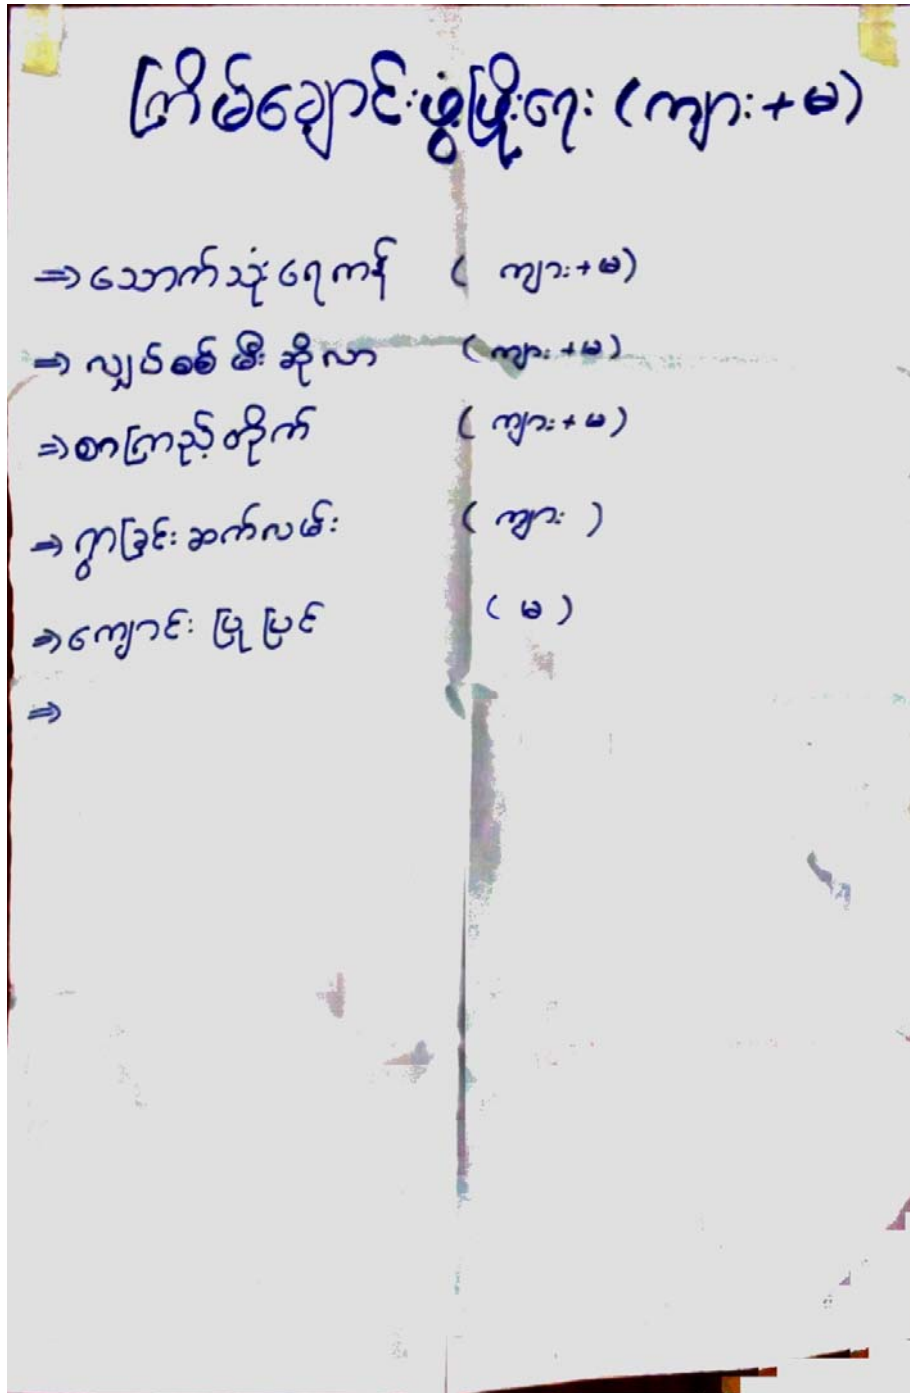 ကြိမ်ချောင်းဖွံ့ဖြိုးရေး (ကျား+မ)
⇒ သောက်သုံးရေကန် ( ကျား+မ)
⇒ လျှပ်စစ်မီး ဆိုလာ (ကျား+မ)
⇒ စာကြည့်တိုက် ( ကျား+မ)
⇒ ရွာခြင်းဆက်လမ်း ( ကျား )
⇒ ကျောင်း ပြုပြင် ( မ )
⇒